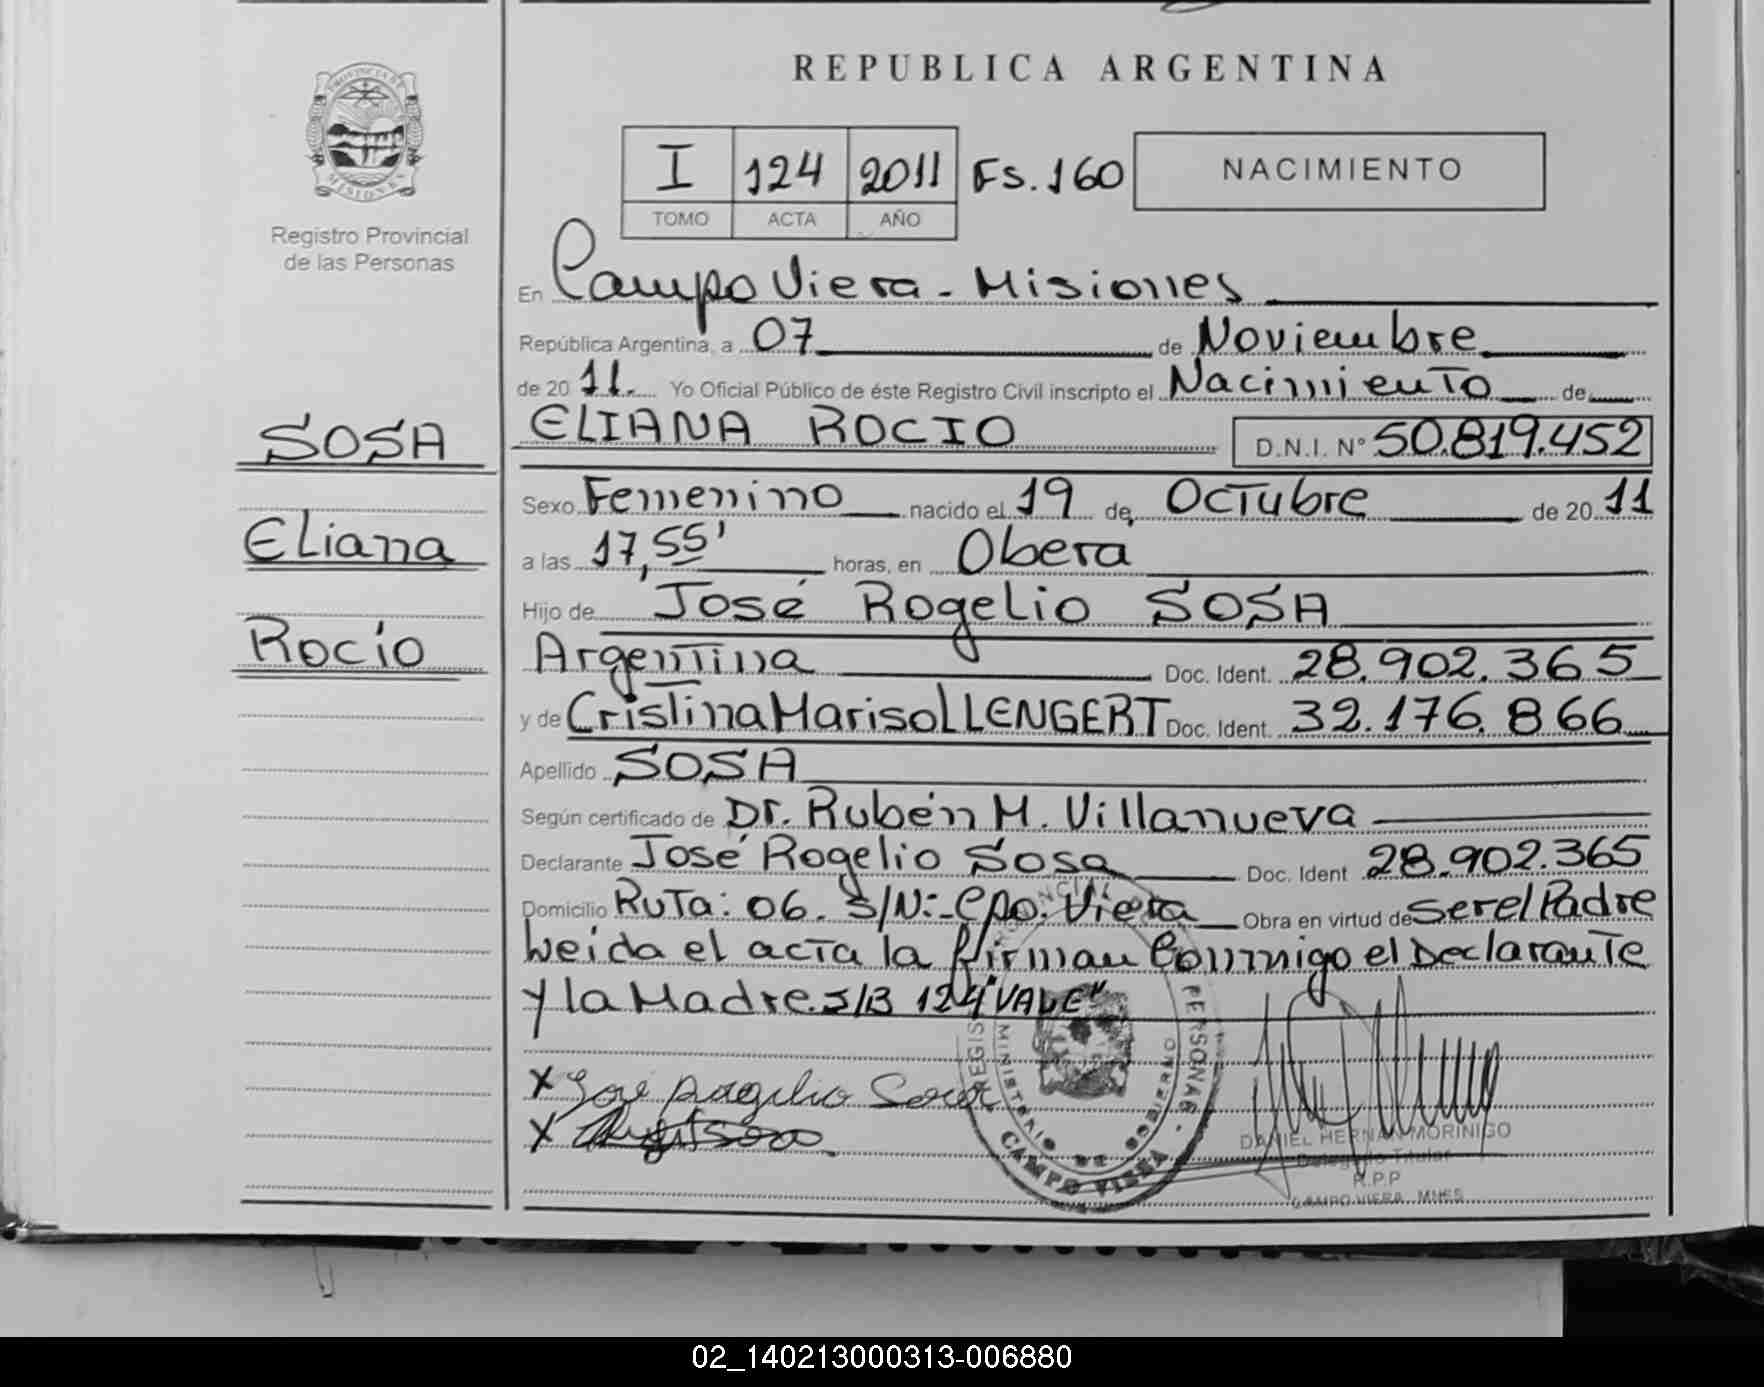 REPUBLICA ARGENTINA
PROVINCIA DE
MISIONES
Registro Provincial
de las Personas
I 124 2011 Fs. 160
TOMO ACTA AÑO
NACIMIENTO
En Campo Viera - Misiones
República Argentina, a 07 de Noviembre
de 20 11. Yo Oficial Público de éste Registro Civil inscripto el Nacimiento de
SOSA
ELIANA ROCIO D.N.I. N° 50.819.452
Sexo Femenino nacido el 19 de Octubre de 20 11
Eliana
a las 17,55' horas, en Obera
Hijo de José Rogelio SOSA
Rocío
Argentina Doc. Ident. 28.902.365
y de Cristina Marisol LENGERT Doc. Ident. 32.176.866
Apellido SOSA
Según certificado de Dr. Rubén M. Villanueva
Declarante José Rogelio Sosa Doc. Ident 28.902.365
Domicilio Ruta: 06. S/N:- Cpo. Viera Obra en virtud de ser el Padre
Leida el acta la firman Conmigo el Declarante
y la Madre. S/B 124 "VALE"
X José Rogelio Sosa
X
MINISTERIO DE GOBIERNO
CAMPO VIERA
DANIEL HERNAN MORINIGO
Delegado Titular
R.P.P
CAMPO VIERA - MNES
02_140213000313-006880